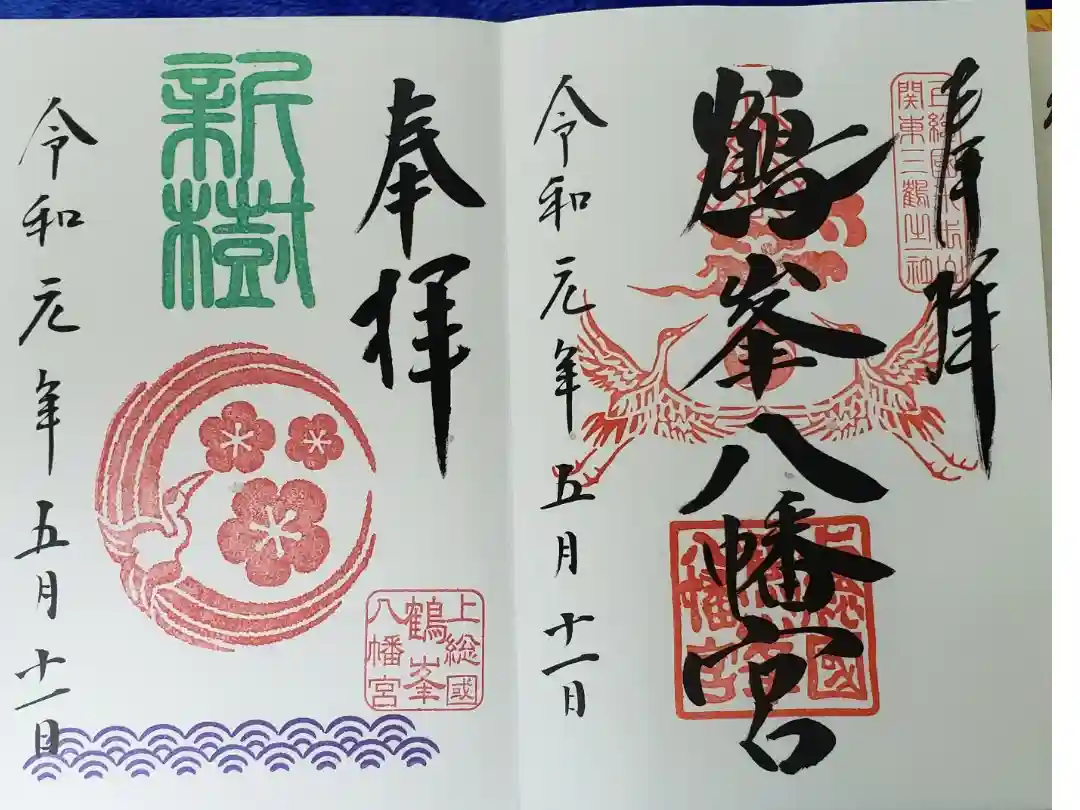 奉拝
関東三鶴之一社
鶴峯八幡宮
上総國
鶴峯
八幡宮
令和元年五月十一日
奉拝
新樹
上総國
鶴峯
八幡宮
令和元年五月十一日